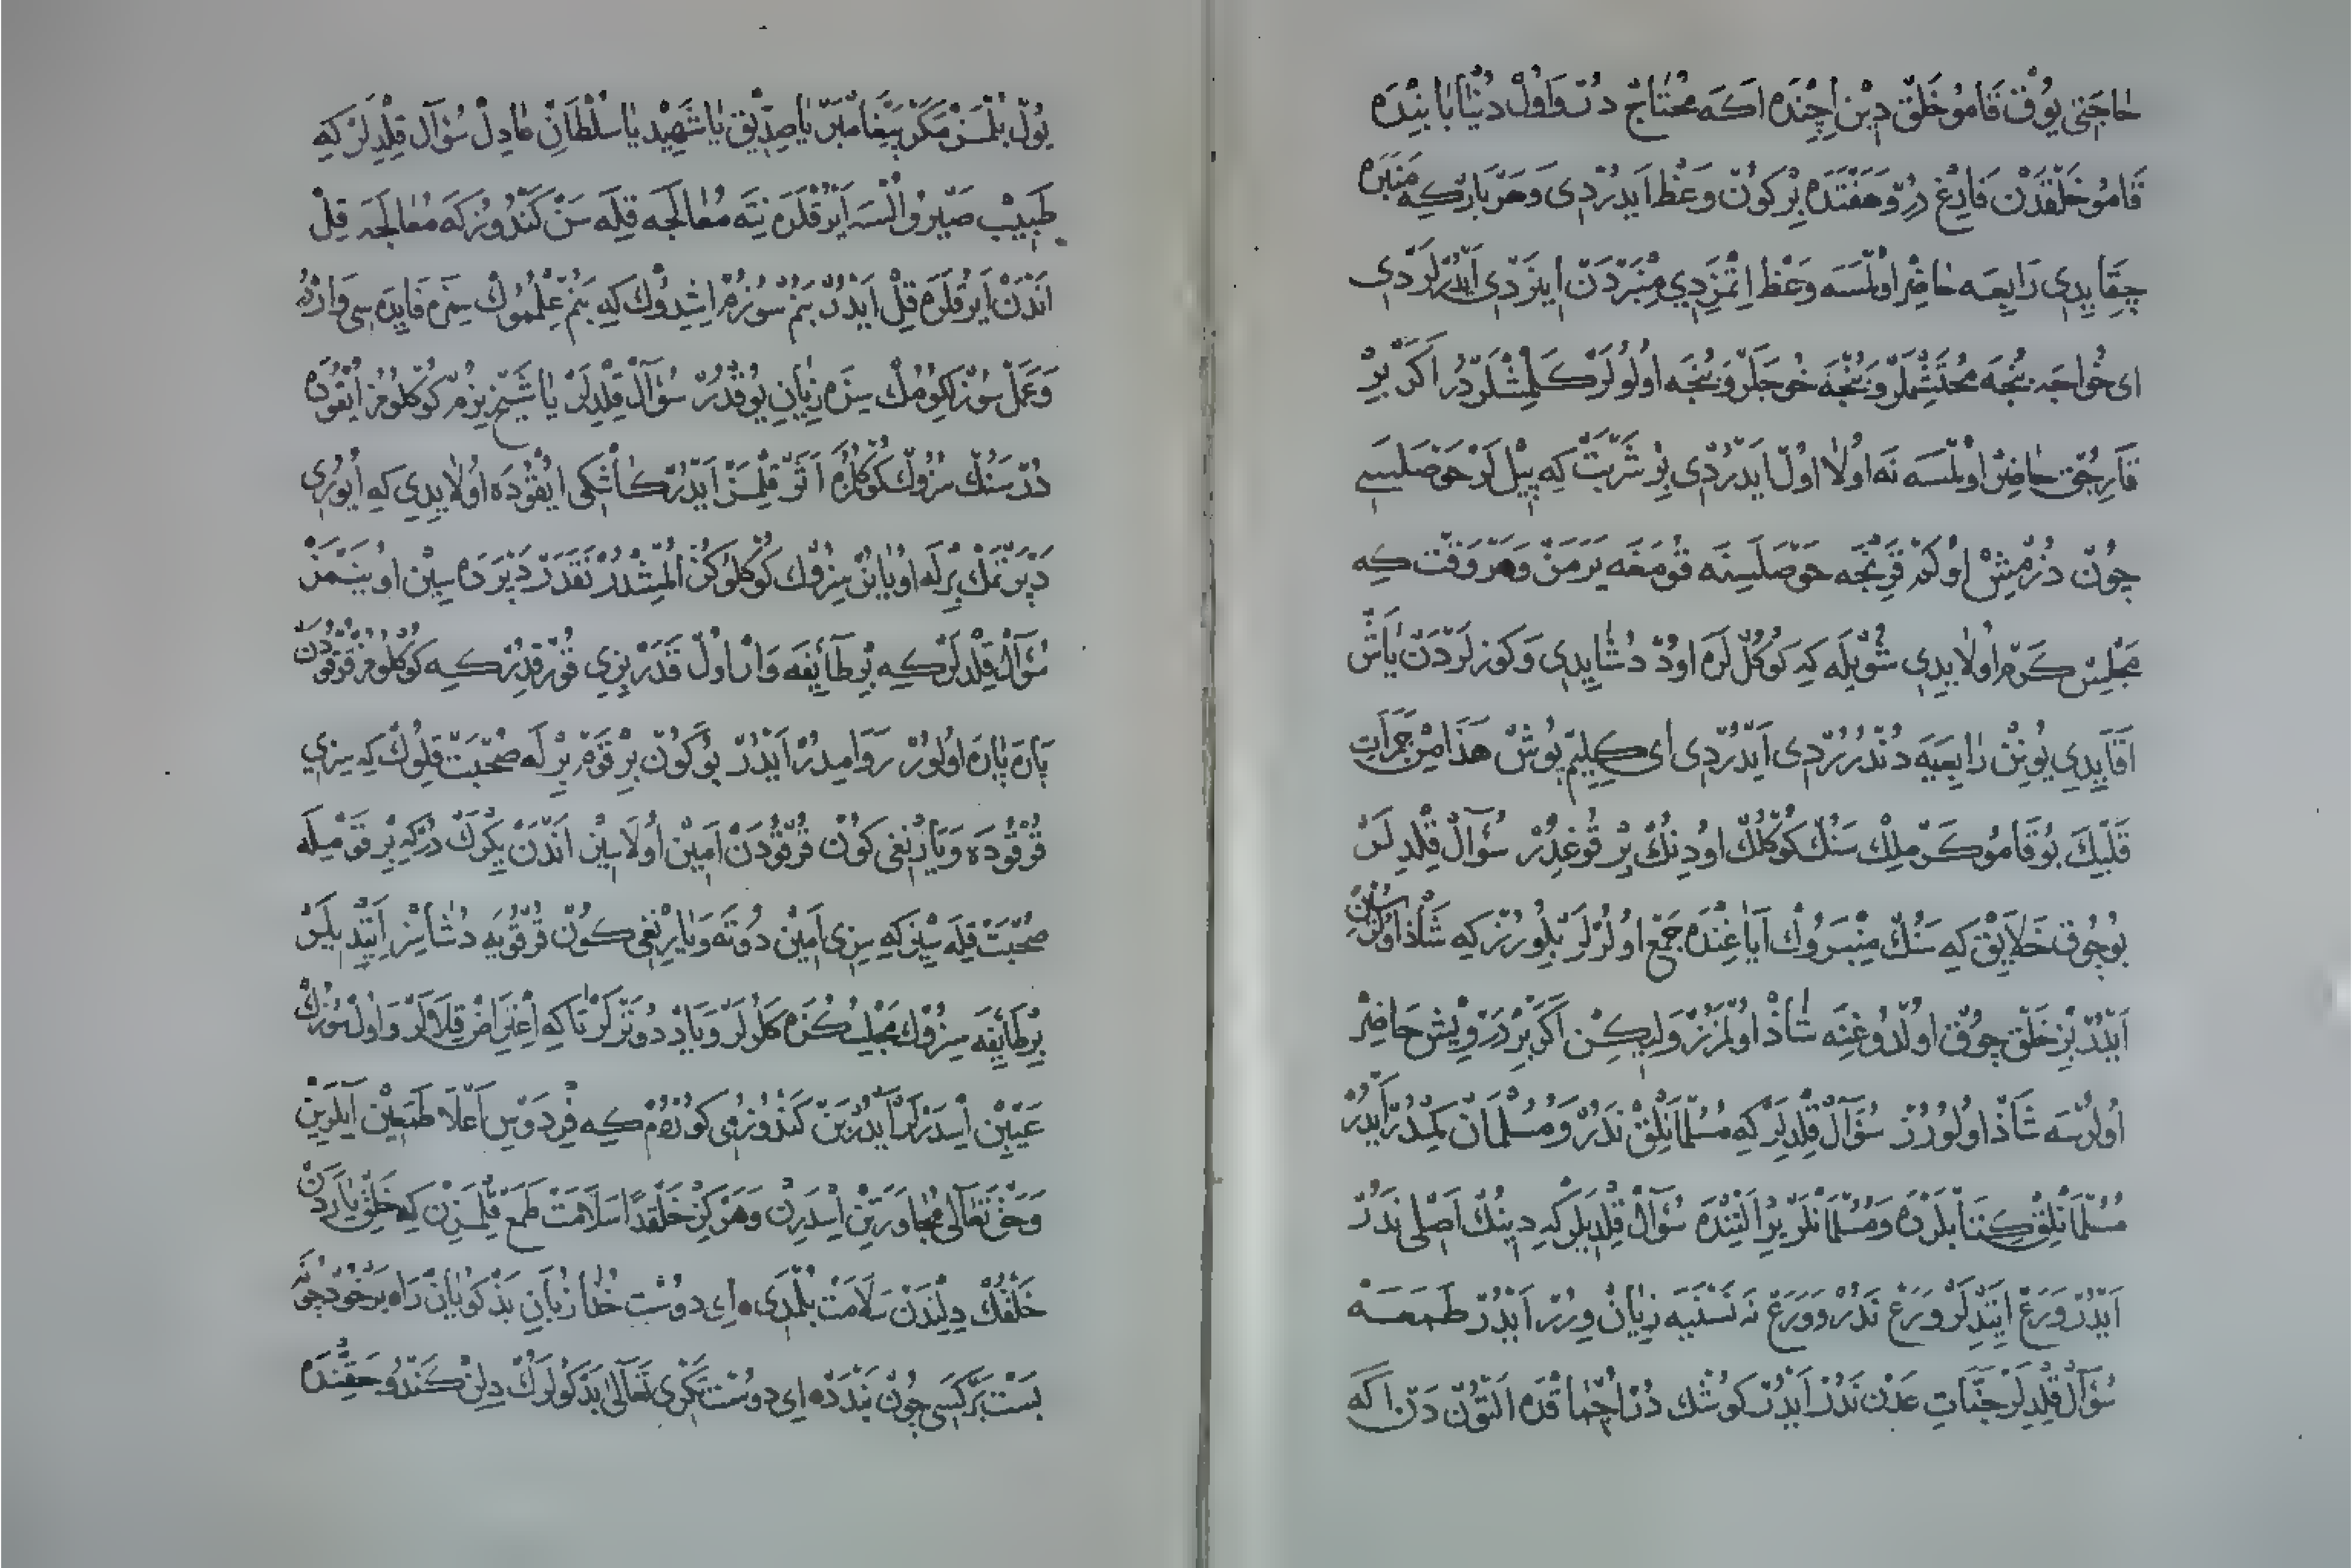 حاجتی یوق قامو خلق دین اچنده اکه محتاج در و اول دنیا بابنده
قامو خلقدن فارغ در و هفتده بر کون وعظ ایدردی و هر بار که منبره
چقایدی رابعه حاضر اولمسه وعظ اتمزدی منبردن اینردی ایدرلردی
ای خواجه نجه محتشملر و نجه خوجلر و نجه اولولر کلمشلردر اکر بر
قارجق حاضر اولمسه نه اولا اول ایدردی بر شربت که پیل لر حوصلسی
چون دزمش اوکه قرنجه حوصلسنه قومغه یرمن و هر وقت که
مجلس کرم اولایدی شویله که کوکللره اود دشایدی و کوزلردن یاش
اقایدی یوزن رابعیه دندررردی ایدردی ای کلیم پوش هذا من جمرات
قلبک بو قامو کرملک سنک کوکلک اودنک بر قوغدر سؤال قلدلر
بو چوق خلایق که سنک منبروک ایاغنده جمع اولرلر بلورز که شاذ اولرسن
ایدر بز خلق چوق اولدوغنه شاذ اولمزز ولیکن اکر بر درویش حاضر
اولرسه شاذ اولورز سؤال قلدلر که مسلمانلق ندر و مسلمان کمدر ایدر
مسلمانلق کتابلرده و مسلمانلر یر التنده سؤال قلدیلر که دینک اصلی ندر
ایدر ورع ایتدلر ورع ندر و ورع نه نسنیه زیان ورر ایدر طمعسه
سؤال قلدلر جنات عدن ندر ایدر کوشک در اچماقده التوندن اکه
یول بلمز مکر پیغامبر یا صدیق یا شهید یا سلطان عادل سؤال قلدلر که
طبیب صیرو السه ایرقلره نته معالجه قله سن کندوزکه معالجه قل
اندن ایرقلره قل ایدر بنم سوزم اشدوک که بنم علموک سزه فایده سی واردر
و عمل سوزلکومک سزه زیان یوقدر سؤال قلدلر یا شیخ بزم کوکلومز ایقوده
در سنک سزوک کوکلره اثر قلمز ایدر کاشکی ایقوده اولایدی که ایوری
دپرتمک برله اویانر سزوک کوکلوکز المشدر نقدر دپرده سین اویمز
سؤال قلدلر که بر طایفه وار اول قدر بزی قورقدر که کوکلومز قورقودن
پاره پاره اولور روامدر ایدر بو کون بر قوم برله صحبت قلوک که سزی
قرقوده و یارنغی کون قرقودن امین اولاسین اندن یکرک در که بر قومیله
صحبت قله سیز که سزی امین دوته و یارنغی کون قرقویه دشاسز ایتدیلر
بر طایفه سزوک مجلسکزه کلرلر و یاد دوترلر تا که اعتراض قلالر و اول سوزک
عیبین استرلر ایدر بن کندوزمی کوردم که فردوس اعلا طمعین ایلرین
و حق تعالی مجاورتین استرین و هرکز خلقدا سلامت طمع قلمزن که خلقی یاردن
خلقک دلندن سلامت بلمدی ای دوست خطا زبان بذکویان راه بر خود جو نه
بست بر کسی چون بندده ای دوست تکری تعالی بذ کولرک دلن کندو حقنده